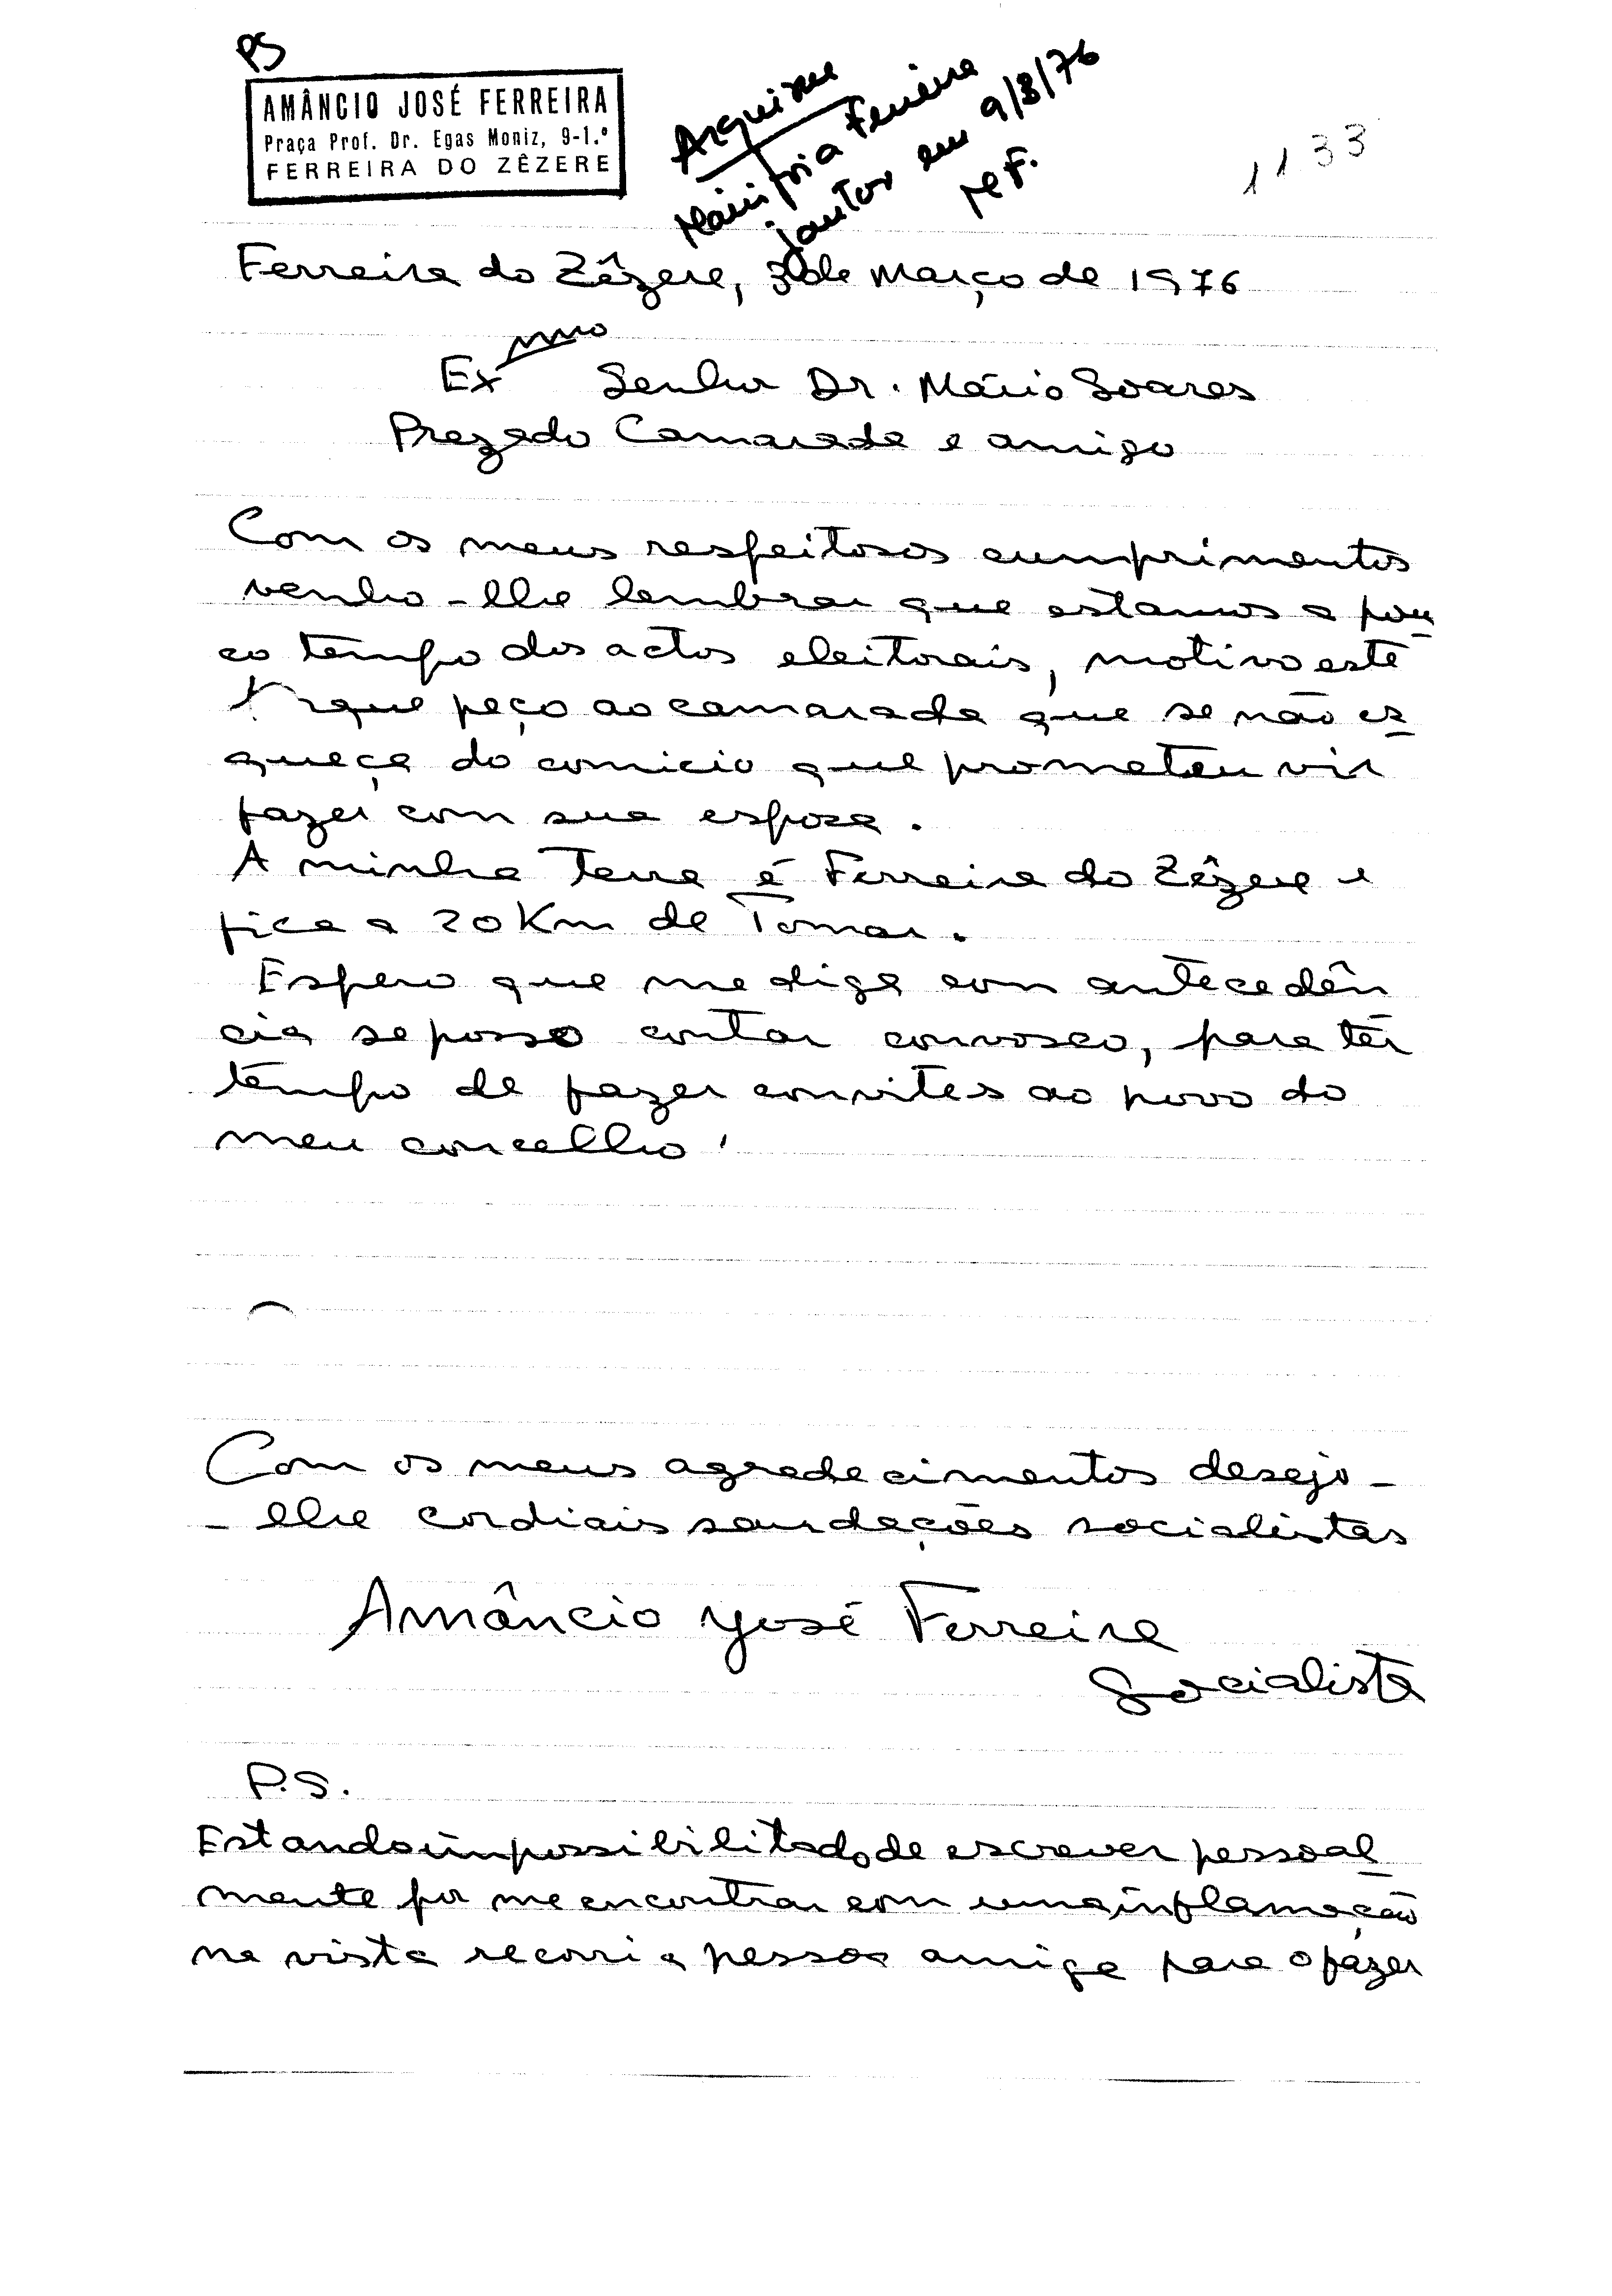 PS
AMÂNCIO JOSÉ FERREIRA
Praça Prof. Dr. Egas Moniz, 9-1.º
FERREIRA DO ZÊZERE
Arquivar
Ferreira
jantar em 9/3/76
MF.
1133
Ferreira do Zêzere, de Março de 1976
Exmo Senhor Dr. Mário Soares
Prezado Camarada e amigo
Com os meus respeitosos cumprimentos
venho-lhe lembrar que estamos a pou
co tempo dos actos eleitorais, motivo este
que peço ao camarada que se não es
queça do comicio que prometeu vir
fazer com sua esposa.
A minha Terra é Ferreira do Zêzere e
fica a 20 Km de Tomar.
Espero que me diga com antecedên
cia se posso contar convosco, para ter
tempo de fazer convites ao povo do
meu concelho
Com os meus agradecimentos desejo-
-lhe cordiais saudações socialistas
Amâncio José Ferreira
Socialista
P.S.
Estando impossibilitado de escrever pessoal
mente por me encontrar com uma inflamação
na vista recorri a pessoa amiga para o fazer